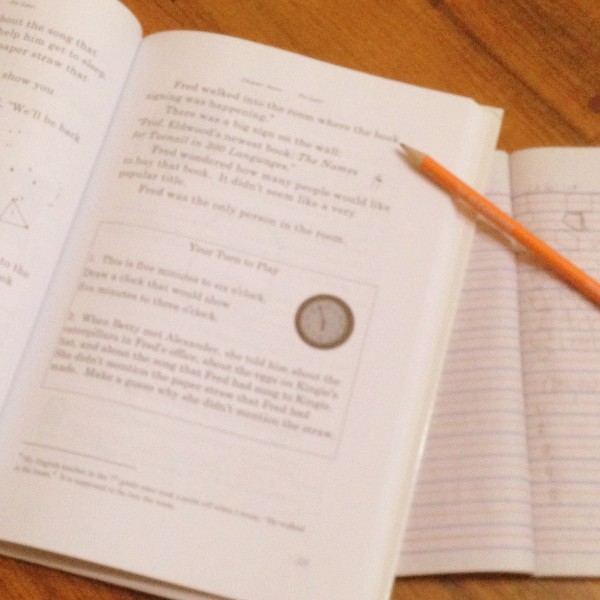 bout the song that
help him get to sleep,
paper straw that
show you
"We'll be back
to the
Fred walked into the room where the book
signing was happening.*
There was a big sign on the wall:
"Prof. Eldwood's newest book: The Names
for Toenail in 200 Languages."
Fred wondered how many people would like
to buy that book. It didn't seem like a very
popular title.
Fred was the only person in the room.
Your Turn to Play
1. This is five minutes to six o'clock.
Draw a clock that would show
five minutes to three o'clock.
2. When Betty met Alexander, she told him about the
caterpillars in Fred's office, about the eggs on Kingie's
hat, and about the song that Fred had sung to Kingie.
She didn't mention the paper straw that Fred had
made. Make a guess why she didn't mention the straw.